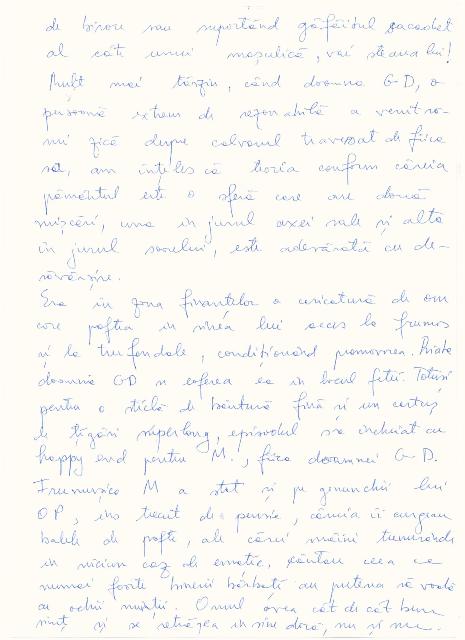 de birou sau suportând gâfâitul sacadat
al câte unui mascul încă, vai steaua lui!
Mult mai târziu, când doamna G D, o
persoană extrem de rezonabilă a venit să-
mi zică despre calvarul traversat de fiica
sa, am înțeles că teoria conform căreia
pământul este o sferă care are două
mișcări, una în jurul axei sale și alta
în jurul soarelui, este adevărată cu de-
săvârșire.
Era în zona finanțelor o caricatură de om
care poftea în sinea lui acces la frumos
și la trufandale, condiționând promovarea.
doamna GD s-a oferit ea în locul fetii. Totuși
pentru o sticlă de băutură fină și un cartuș
de țigări superlong, episodul s-a încheiat cu
happy end pentru M., fiica doamnei G D.
Frumușica M a stat și pe genunchii lui
OP, ins trecut de pensie, căruia îi curgeau
balele de pofte, ale cărui mâini tremurânde
în niciun caz de emoție, căutau ceea ce
numai foștii tinerii bărbați au puterea să vadă
cu ochii minții. Omul avea cât de cât bun
simț și se retrăgea în sine dacă, nu și nu.